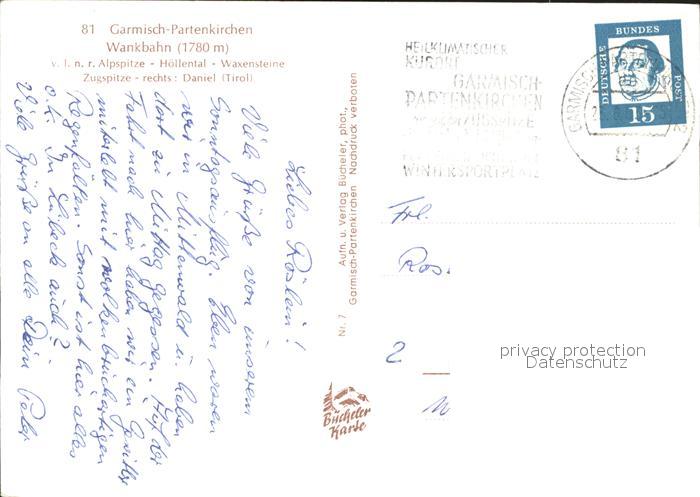 81 Garmisch-Partenkirchen
Wankbahn (1780 m)
v. l. n. r. Alpspitze - Höllental - Waxensteine
Zugspitze - rechts: Daniel (Tirol)
Liebes Röslein!
Viele Grüße von unserem
Sonntagsausflug. Eben waren
wir in Mittenwald u. haben
dort zu Mittag gegessen. Auf der
Fahrt nach hier haben wir ein Gewitter
miterlebt mit wolkenbruchartigen
Regenfällen. Sonst ist hier alles
o.k. In Lübeck auch?
Viele Grüße an alle Dein Peter
Nr. 7
Aufn. u. Verlag Bücheler, phot.,
Garmisch-Partenkirchen Nachdruck verboten
Bücheler
Karte
HEILKLIMATISCHER
KURORT
GARMISCH-
PARTENKIRCHEN
WINTERSPORTPLATZ
GARMISCH
81
DEUTSCHE
BUNDES
POST
15
Frl.
Ros.
2
privacy protection
Datenschutz